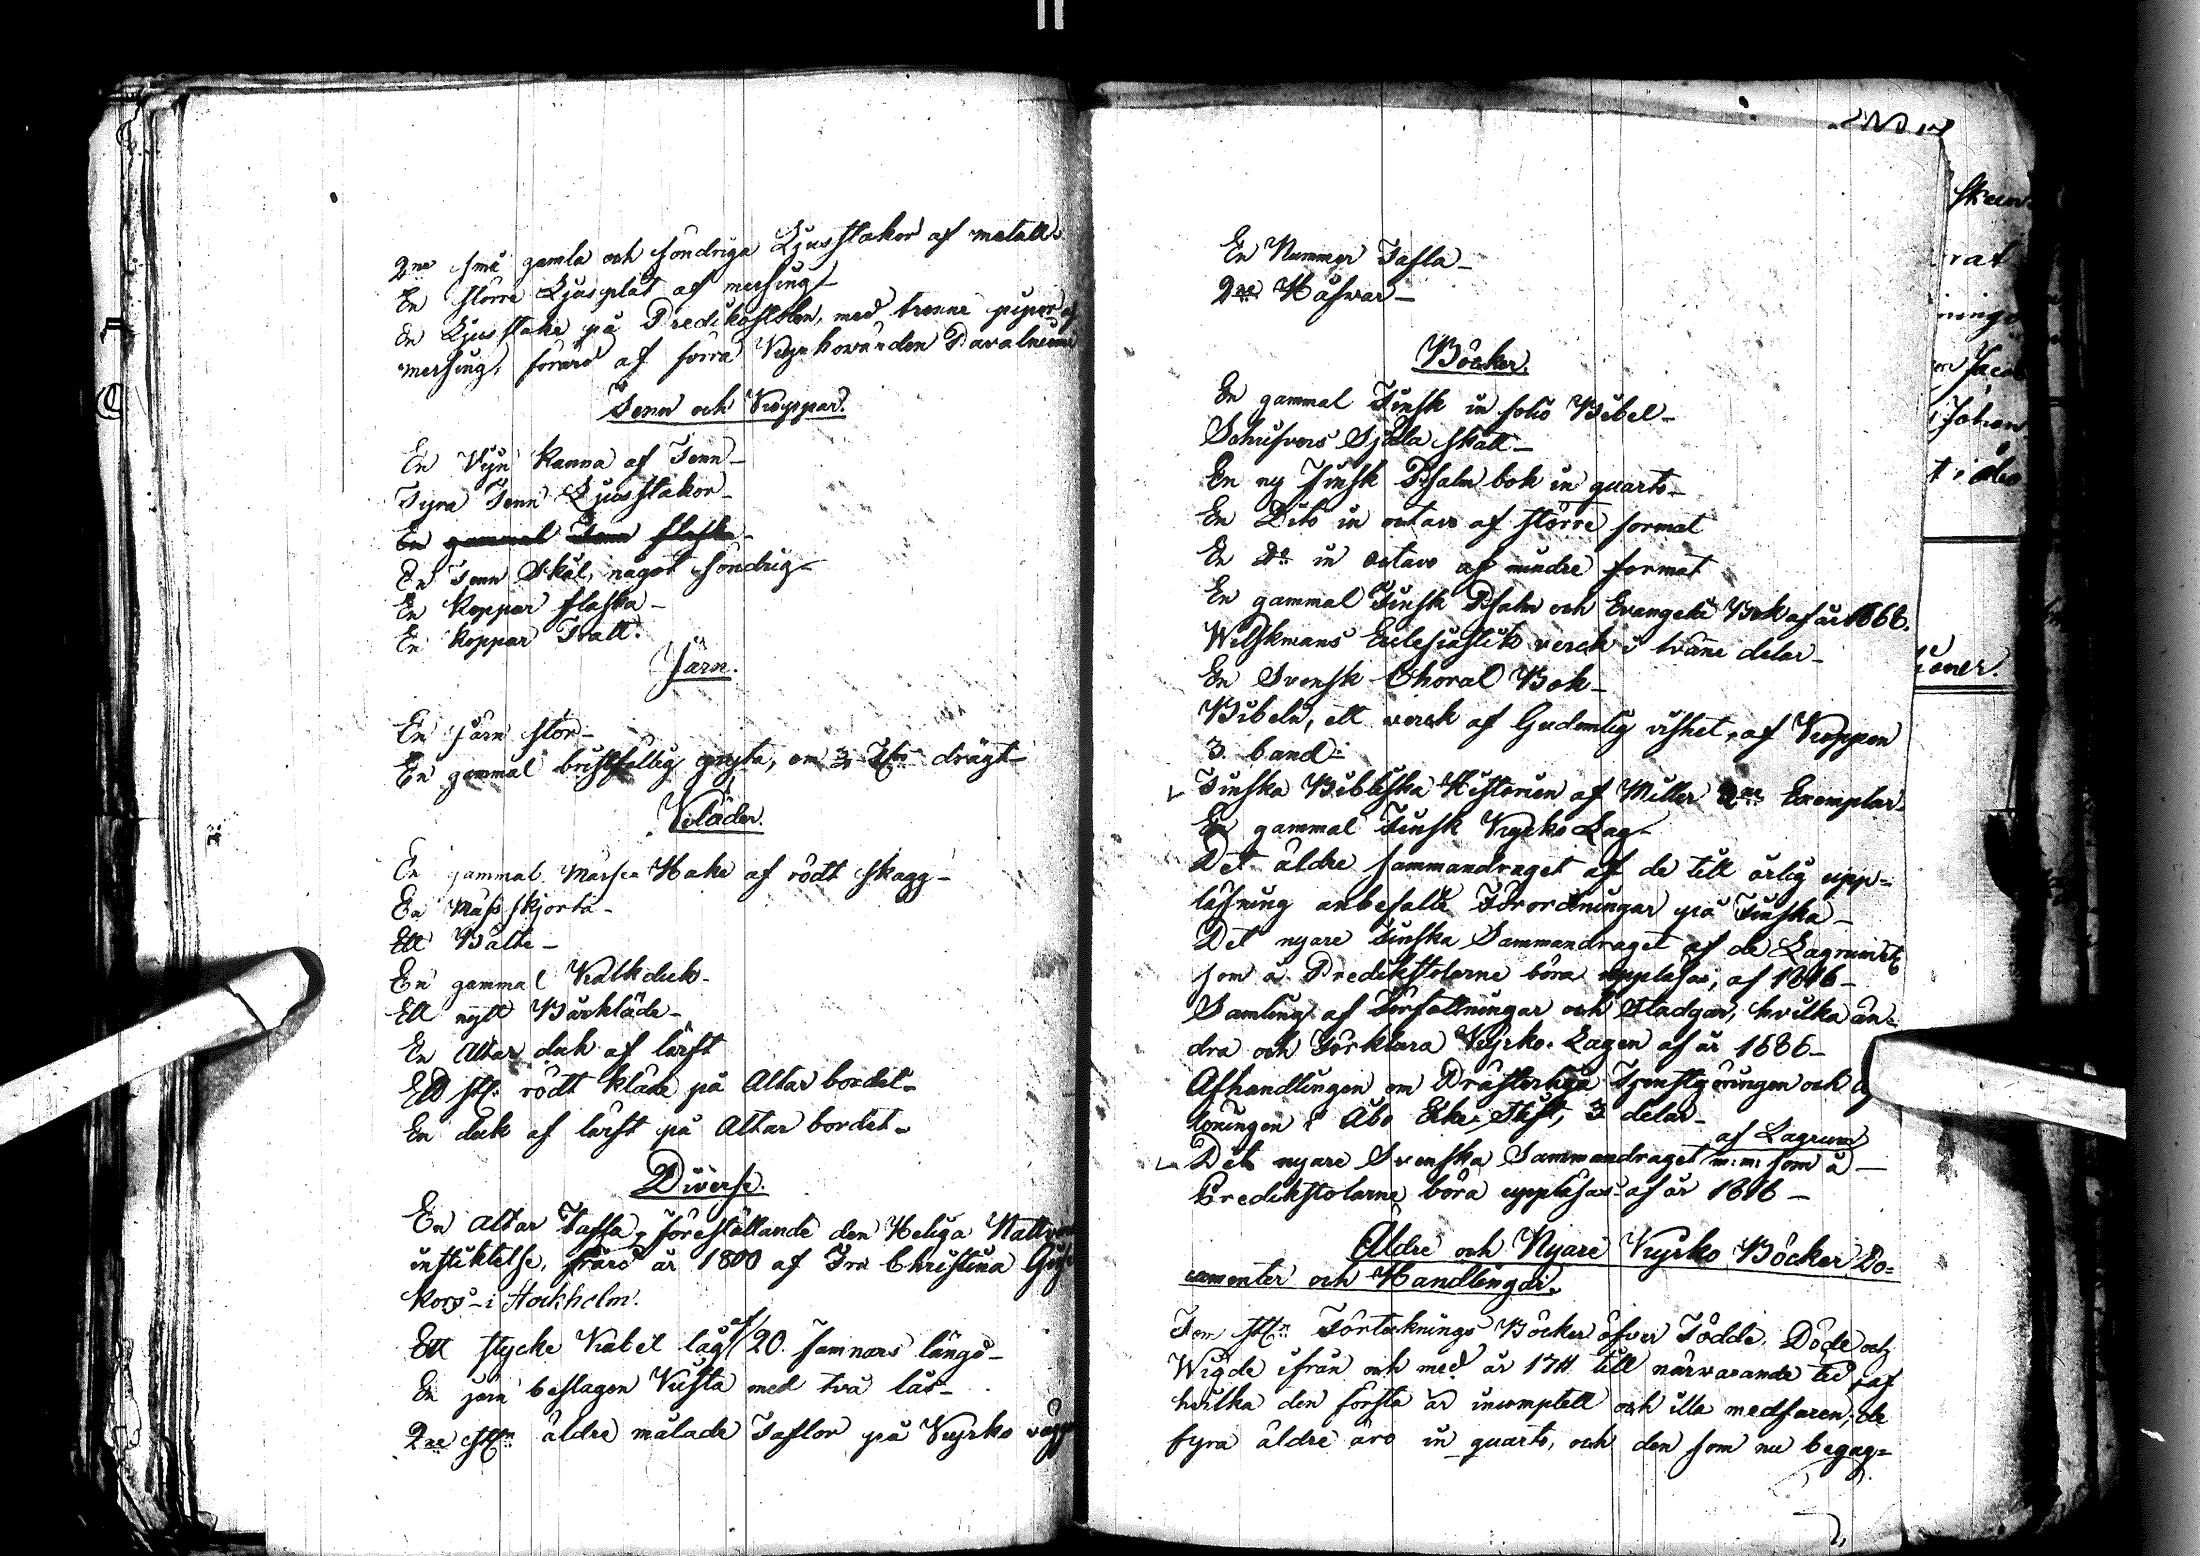 2ne små gamla och söndriga Ljusstakor af metall.
En större Ljusplåt af messing
En Ljusstake på Predikostolen, med trenne pipor af
messing, förärd af förra Kyrkowärden Pavalnius
Tenn och Koppar.
En Vijn kanna af Tenn
Fyra Tenn Ljusstakor
En gammal Tenn flaska
En Tenn Skål, något söndrig
En Koppar flaska
En Koppar Tratt.
Järn.
En järn stör
En gammal bristfällig gryta, om 3 drägt
Kläder.
En gammal Mässe Hake af rödt skagg
En Mäss skjorta
Ett Bälte
En gammal Kalkduk
Ett nytt Bårkläde
En Altar duk af lärft
Ett st: rödt kläde på Altar bordet
En duk af lärft på Altar bordet
Diverse.
En Altar Taffla, föreställande den Heliga Nattva
instiktelse, förärd år 1800 af Fru Christina
kors i Stockholm.
Ett stycke Kabel tåg af 20 famnars längd
En järn beslagen Kista med två lås
2ne st:n äldre målade Taflor på Kyrko vägg
En Nummer Tafla
2ne Håfvar
Böcker.
En gammal Finsk in folio Bibel
Schrifvers Själa skatt
En ny Finsk Psalm bok in quarto
En Dito in octavo af större format
En do in octavo af mindre format
En gammal Finsk Psalm och Evangelii Bok af år 1666.
Wilskmans Eclesiastik verck i tvänne delar
En Svensk Choral Bok
Bibeln, ett verck af Gudomlig vishet, af Kioppen
3 band
Finska Bibliska Historien af Miller 2ne Exemplar
En gammal Finsk KyrkoLag
Det äldre sammandraget af de till årlig upp-
läsning anbefalte Förordningar på Finska
Det nyare Finska Sammandraget af de Lagrum etc
som å Predikstolarne böra uppläsas, af 1816
Samling af Författningar och Stadgar, hvilka än-
dra och Förklara Kyrko-Lagen af år 1686
Afhandlingen om Prästerliga Tjenstgöringen och
löningen i Åbo Erke-Stift, 3 delar
af Lagrum
Det nyare Svenska Sammandraget m:m: som å
Predikstolarne böra uppläsas af år 1816
Äldre och Nyare Kyrko Böcker, Do-
cumenter och Handlingar.
Fem st:n Förtecknings Böcker öfver Födde, Döde och
Wigde ifrån och med år 1711 till närvarande tid, af
hvilka den första är incomplett och illa medfaren; de
fyra äldre äro in quarto, och den som nu begag-